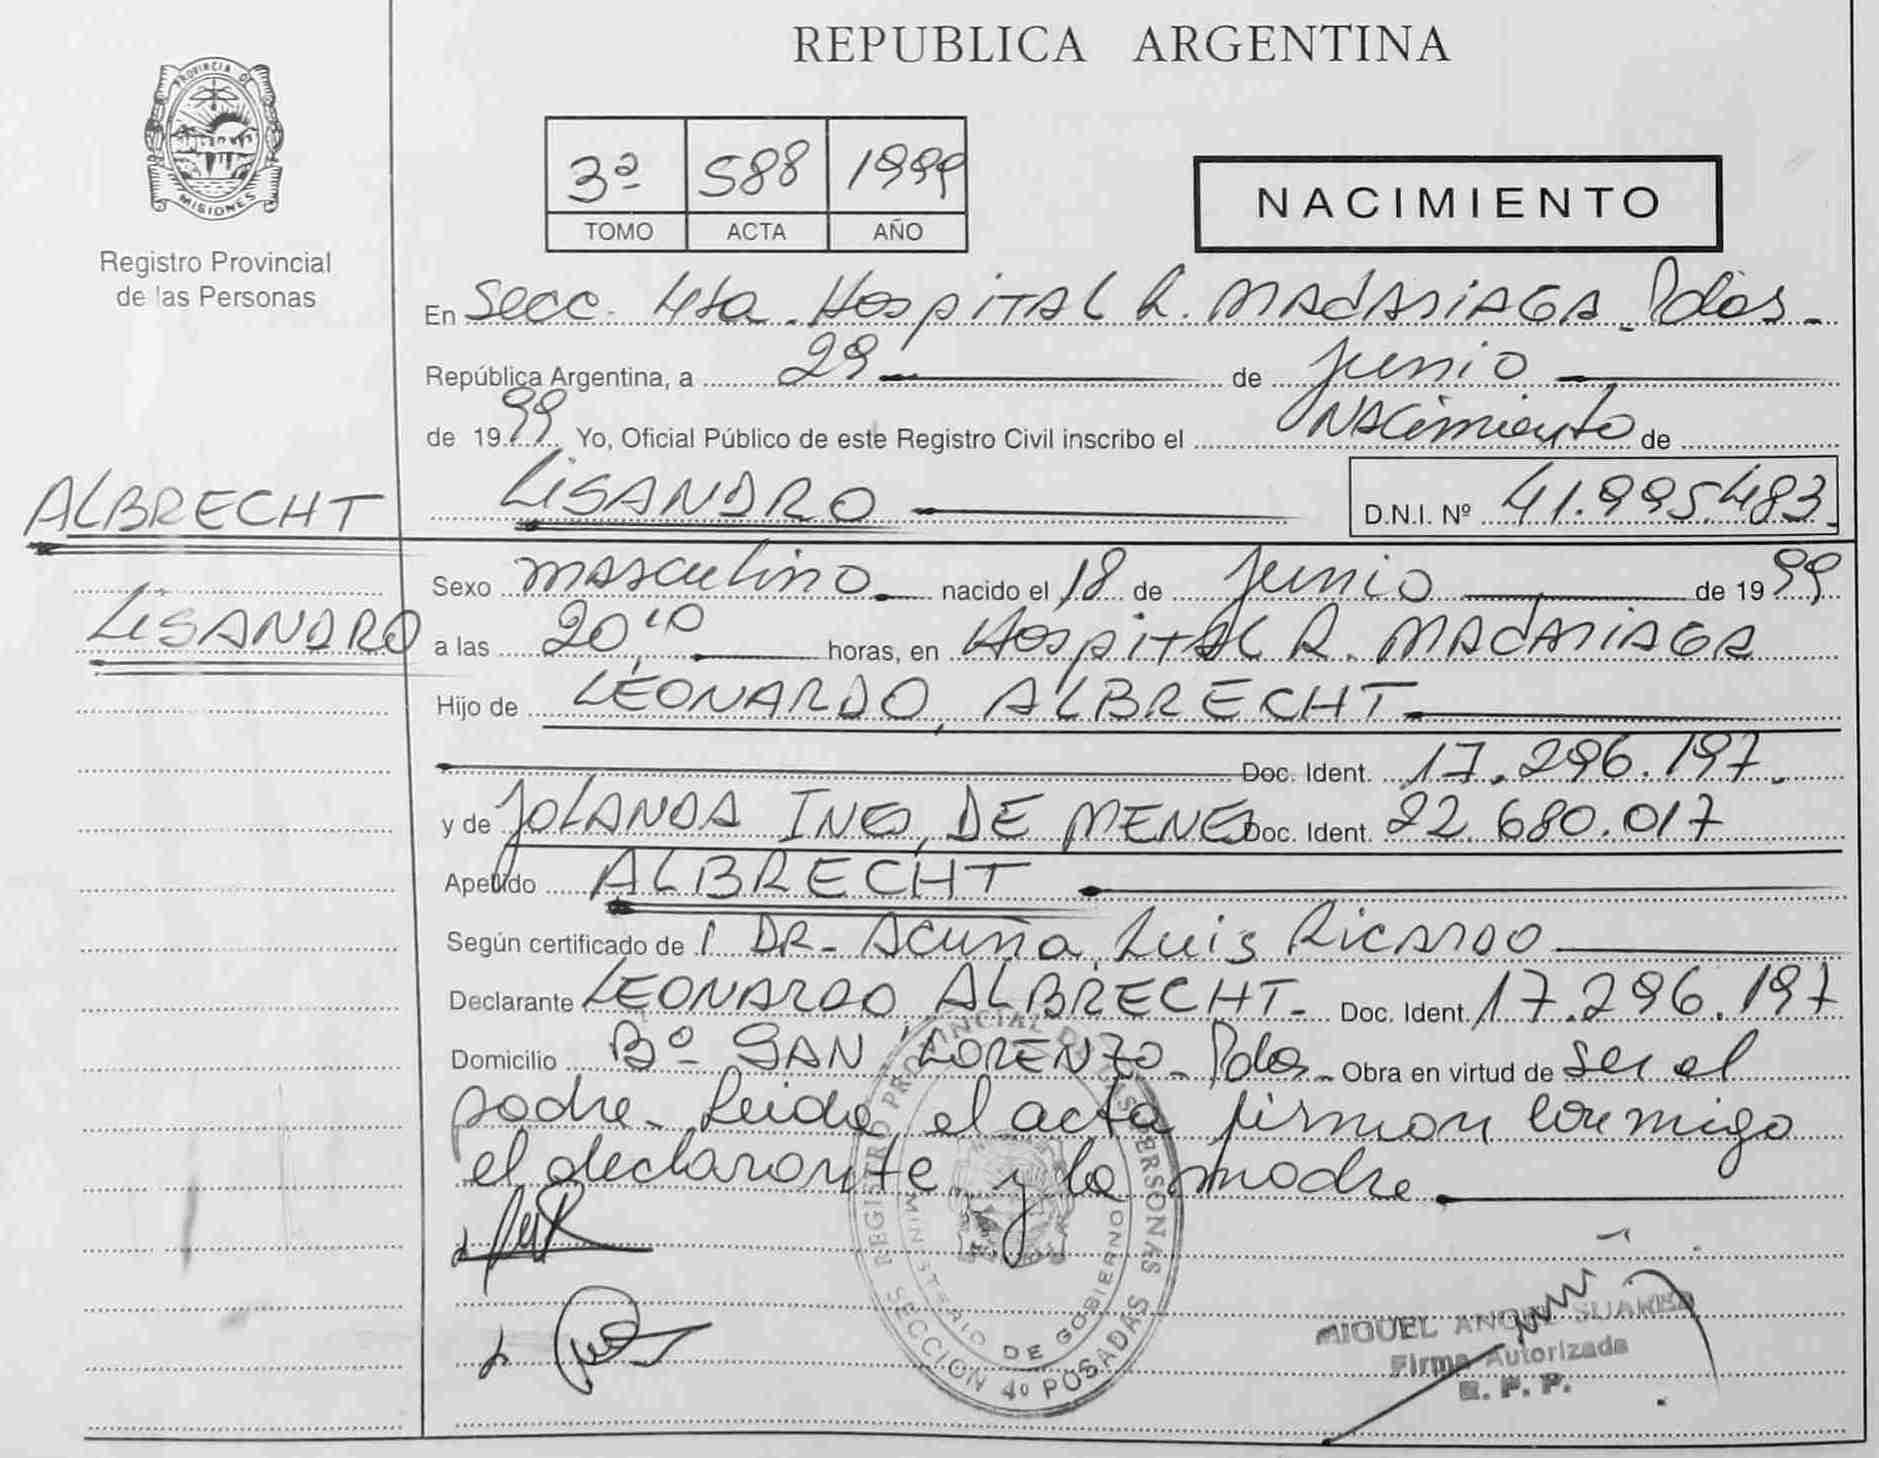 REPUBLICA ARGENTINA
PROVINCIA DE MISIONES
Registro Provincial
de las Personas
3ª 588 1999
TOMO ACTA AÑO
NACIMIENTO
En Secc. 4ta. HospiTAL R. MADARIAGA. Pdas.
República Argentina, a 29 de junio
de 1999 Yo, Oficial Público de este Registro Civil inscribo el NACimiento de
ALBRECHT
LISANDRO
D.N.I. Nº 41.995.483.
LISANDRO
Sexo masculino nacido el 18 de junio de 1999
a las 20,10 horas, en HospiTAL R. MADARIAGA
Hijo de LEONARDO, ALBRECHT
Doc. Ident. 17.296.197.
y de JOLANDA INES, DE MENEZ Doc. Ident. 22.680.017
Apellido ALBRECHT
Según certificado de 1 DR. Acuña, Luis Ricardo
Declarante LEONARDO, ALBRECHT. Doc. Ident. 17.296.197
Domicilio Bº SAN LORENZO. Pdas. Obra en virtud de ser el
padre. Leida el acta firman conmigo
el declarante y la madre
REGISTRO PROVINCIAL DE LAS PERSONAS
MINISTERIO DE GOBIERNO
SECCION 4º POSADAS
MIGUEL ANGEL SUAREZ
Firma Autorizada
R. P. P.